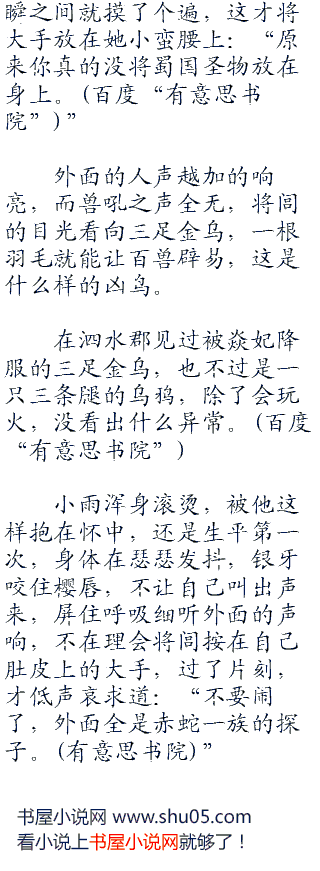 瞬之间就摸了个遍，这才将
大手放在她小蛮腰上：“原
来你真的没将蜀国圣物放在
身上。(百度“有意思书
院”)”
外面的人声越加的响
亮，而兽吼之声全无，将闾
的目光看向三足金乌，一根
羽毛就能让百兽辟易，这是
什么样的凶鸟。
在泗水郡见过被焱妃降
服的三足金乌，也不过是一
只三条腿的乌鸦，除了会玩
火，没看出什么异常。(百度
“有意思书院”)
小雨浑身滚烫，被他这
样抱在怀中，还是生平第一
次，身体在瑟瑟发抖，银牙
咬住樱唇，不让自己叫出声
来，屏住呼吸细听外面的声
响，不在理会将闾按在自己
肚皮上的大手，过了片刻，
才低声哀求道：“不要闹
了，外面全是赤蛇一族的探
子。(有意思书院)”
书屋小说网 www.shu05.com
看小说上书屋小说网就够了！